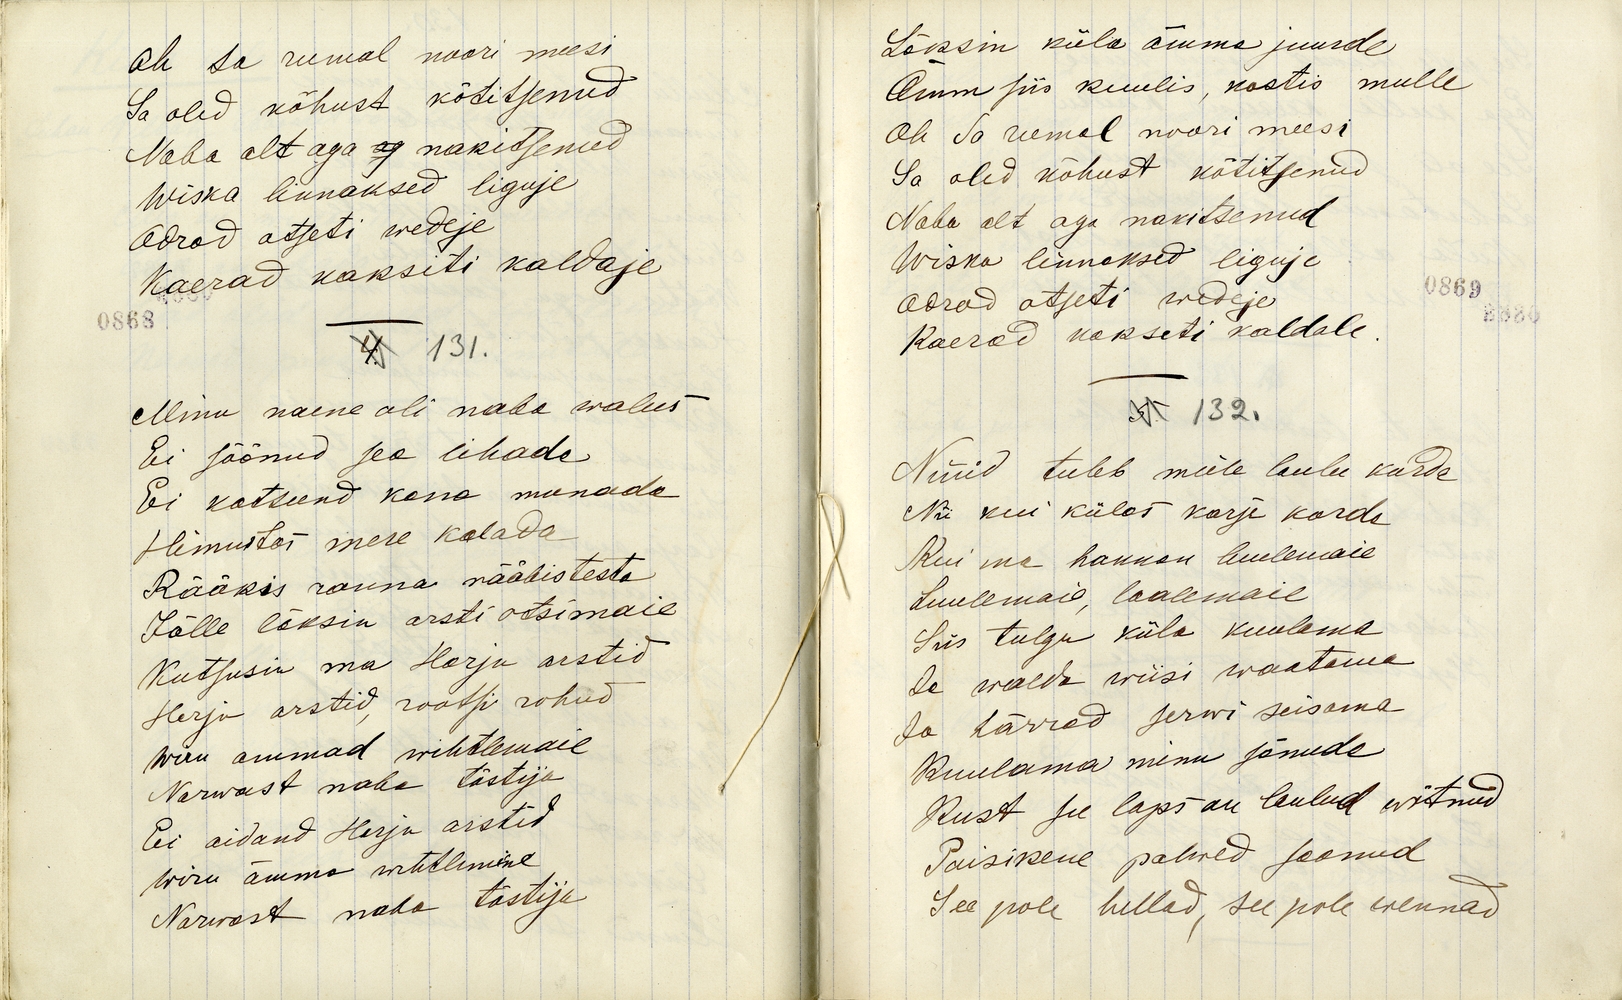 Oh sa rumal noori meesi
Sa oled kõhust kõtitsenud
Naba alt aga nakitsenud
Wiska linnaksed liguje
Odrad otseti wedeje
Kaerad kakseti kaldaje
0868
131.
Minu naene oli naba walus
Ei söönud sea lihada
Ei katsund kana munada
Himustas mere kalada
Rääkis ranna rääbistesta
Jälle läksin arsti otsimaie
Kutsusin ma Harju arstid
Harju arstid, rootsi rohud
Wiru ammad wihtlemaie
Narwast naba tõstija
Ei aidand Harju arstid
Wiru ämma wihtlemine
Narwast naba tõstija
Läksin küla ämma juurde
Ämm siis kuulis, kostis mulle
Oh Sa rumal noori meesi
Sa oled kõhust kõtitsenud
Naba alt aga nakitsenud
Wiska linnaksed liguje
Odrad otseti wedeje
Kaerad kakseti kaldale.
0869
132.
Nüüd tuleb miile laulu korda
Nii kui külas karja korda
Kui ma hakkan luulemaie
Luulemaie, laalemaie
Siis tulgu küla kuulama
Ja walda wiisi waatama
Ja härrad serwi seisama
Kuulama minu sõnuda
Kust see laps on laulud wõtnud
Paisikene palwed saanud
See pole hellad, see pole wennad